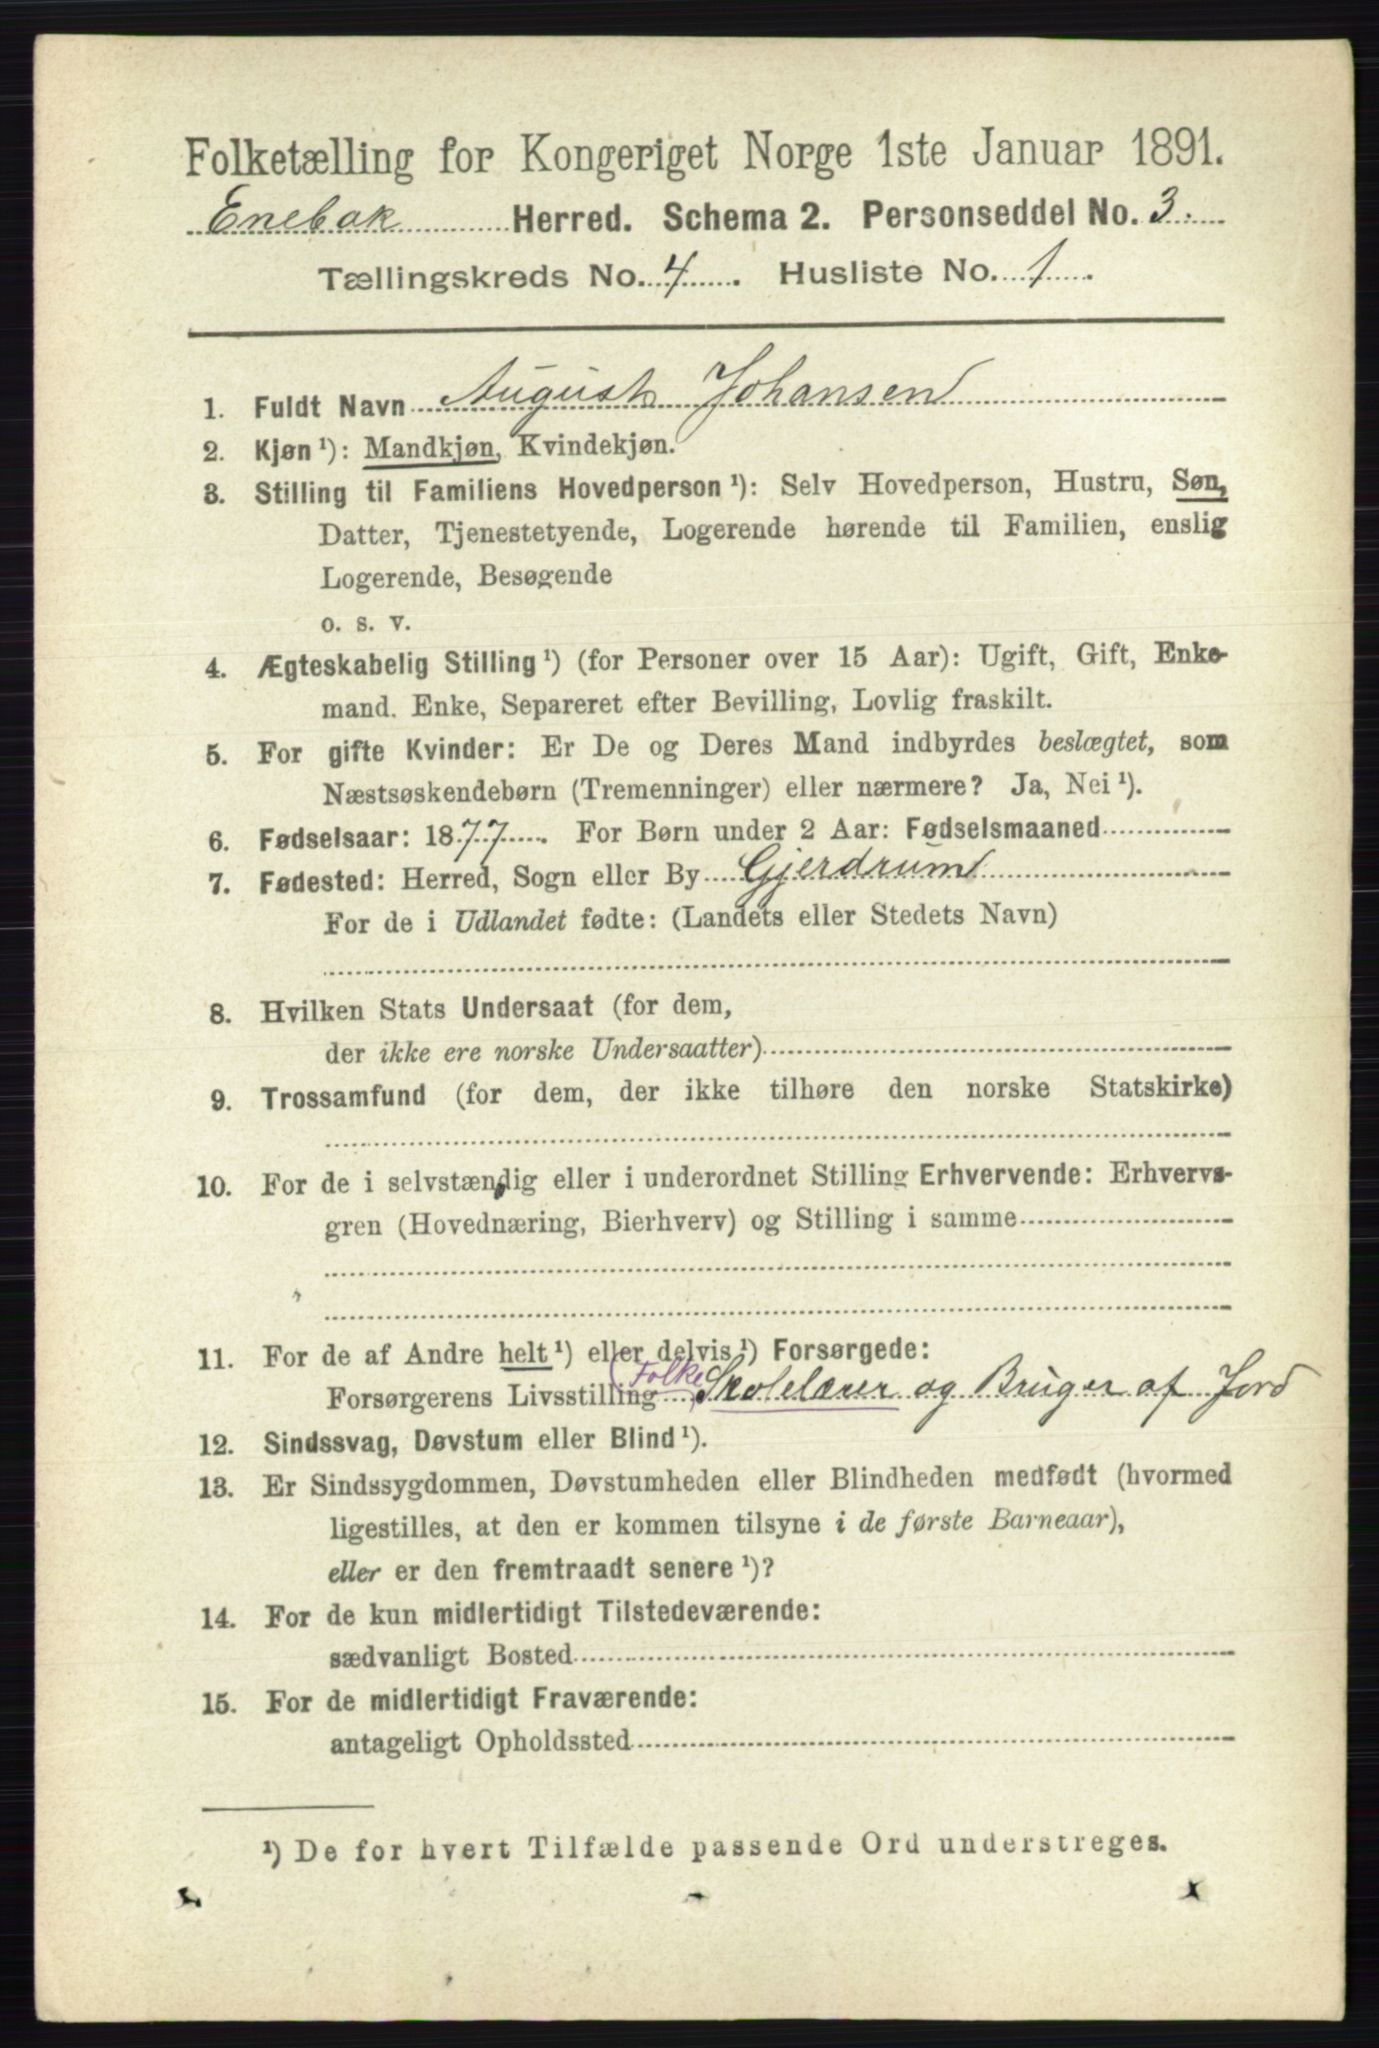 Folketælling for Kongeriget Norge 1ste Januar 1891.
Enebak Herred. Schema 2. Personseddel No. 3.
Tællingskreds No. 4. Husliste No. 1
1. Fuldt Navn August Johansen
2. Kjøn ¹): Mandkjøn, Kvindekjøn.
3. Stilling til Familiens Hovedperson ¹): Selv Hovedperson, Hustru, Søn,
Datter, Tjenestetyende, Logerende hørende til Familien, enslig
Logerende, Besøgende
o. s. v.
4. Ægteskabelig Stilling ¹) (for Personer over 15 Aar): Ugift, Gift, Enke-
mand. Enke, Separeret efter Bevilling, Lovlig fraskilt.
5. For gifte Kvinder: Er De og Deres Mand indbyrdes beslægtet, som
Næstsøskendebørn (Tremenninger) eller nærmere? Ja, Nei ¹).
6. Fødselsaar: 1877. For Børn under 2 Aar: Fødselsmaaned
7. Fødested: Herred, Sogn eller By Gjerdrum
For de i Udlandet fødte: (Landets eller Stedets Navn)
8. Hvilken Stats Undersaat (for dem,
der ikke ere norske Undersaatter)
9. Trossamfund (for dem, der ikke tilhøre den norske Statskirke)
10. For de i selvstændig eller i underordnet Stilling Erhvervende: Erhvervs-
gren (Hovednæring, Bierhverv) og Stilling i samme
11. For de af Andre helt ¹) eller delvis ¹) Forsørgede:
Forsørgerens Livsstilling (Folke) Skolelærer og Bruger af Jord
12. Sindssvag, Døvstum eller Blind ¹).
13. Er Sindssygdommen, Døvstumheden eller Blindheden medfødt (hvormed
ligestilles, at den er kommen tilsyne i de første Barneaar),
eller er den fremtraadt senere ¹)?
14. For de kun midlertidigt Tilstedeværende:
sædvanligt Bosted
15. For de midlertidigt Fraværende:
antageligt Opholdssted
¹) De for hvert Tilfælde passende Ord understreges.